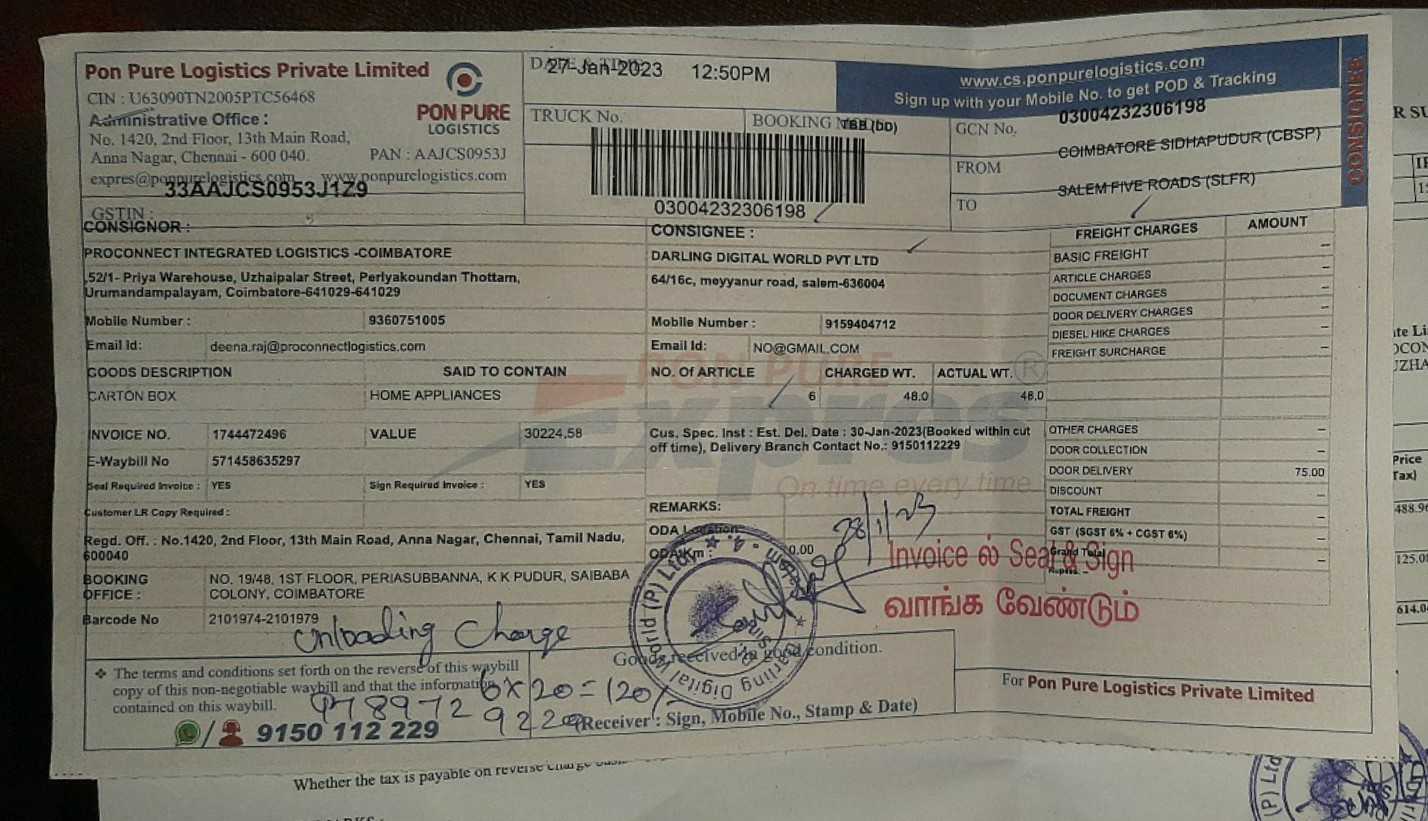 Pon Pure Logistics Private Limited
CIN : U63090TN2005PTC56468
Administrative Office :
No. 1420, 2nd Floor, 13th Main Road,
Anna Nagar, Chennai - 600 040.
PAN : AAJCS0953J
expres@ponpurelogistics.com www.ponpurelogistics.com
33AAJCS0953J1Z9
GSTIN :
PON PURE
LOGISTICS
27-Jan-2023 12:50PM
TRUCK No.
BOOKING
03004232306198
www.cs.ponpurelogistics.com
Sign up with your Mobile No. to get POD & Tracking
GCN No. 03004232306198
FROM COIMBATORE SIDHAPUDUR (CBSP)
TO SALEM FIVE ROADS (SLFR)
CONSIGNEE
CONSIGNOR :
PROCONNECT INTEGRATED LOGISTICS -COIMBATORE
,52/1- Priya Warehouse, Uzhaipalar Street, Perlyakoundan Thottam,
Urumandampalayam, Coimbatore-641029-641029
Mobile Number : 9360751005
Email Id: deena.raj@proconnectlogistics.com
CONSIGNEE :
DARLING DIGITAL WORLD PVT LTD
64/16c, meyyanur road, salem-636004
Mobile Number : 9159404712
Email Id: NO@GMAIL.COM
GOODS DESCRIPTION SAID TO CONTAIN
CARTON BOX HOME APPLIANCES
NO. Of ARTICLE CHARGED WT. ACTUAL WT.
6 48.0 48.0
INVOICE NO. 1744472496 VALUE 30224.58
E-Waybill No 571458635297
Seal Required Invoice : YES Sign Required Invoice : YES
Customer LR Copy Required :
Cus. Spec. Inst : Est. Del. Date : 30-Jan-2023(Booked within cut
off time), Delivery Branch Contact No.: 9150112229
PON PURE
Expres
®
On time every time
REMARKS:
ODA Location:
ODA Km : 0.00
Regd. Off. : No.1420, 2nd Floor, 13th Main Road, Anna Nagar, Chennai, Tamil Nadu,
600040
BOOKING OFFICE : NO. 19/48, 1ST FLOOR, PERIASUBBANNA, K K PUDUR, SAIBABA
COLONY, COIMBATORE
Barcode No 2101974-2101979
FREIGHT CHARGES AMOUNT
BASIC FREIGHT –
ARTICLE CHARGES –
DOCUMENT CHARGES –
DOOR DELIVERY CHARGES –
DIESEL HIKE CHARGES –
FREIGHT SURCHARGE –
OTHER CHARGES –
DOOR COLLECTION –
DOOR DELIVERY 75.00
DISCOUNT –
TOTAL FREIGHT –
GST (SGST 6% + CGST 6%) –
Grand Total –
28/1/23
Invoice ல் Seal & Sign
வாங்க வேண்டும்
Unloading Charge
6x20=120/-
978972
9220
Darling Digital World (P) Ltd.
❖ The terms and conditions set forth on the reverse of this waybill
copy of this non-negotiable waybill and that the information
contained on this waybill.
/ 9150 112 229
Goods received in good condition.
(Receiver : Sign, Mobile No., Stamp & Date)
For Pon Pure Logistics Private Limited
Whether the tax is payable on reverse charge
Price
Tax)